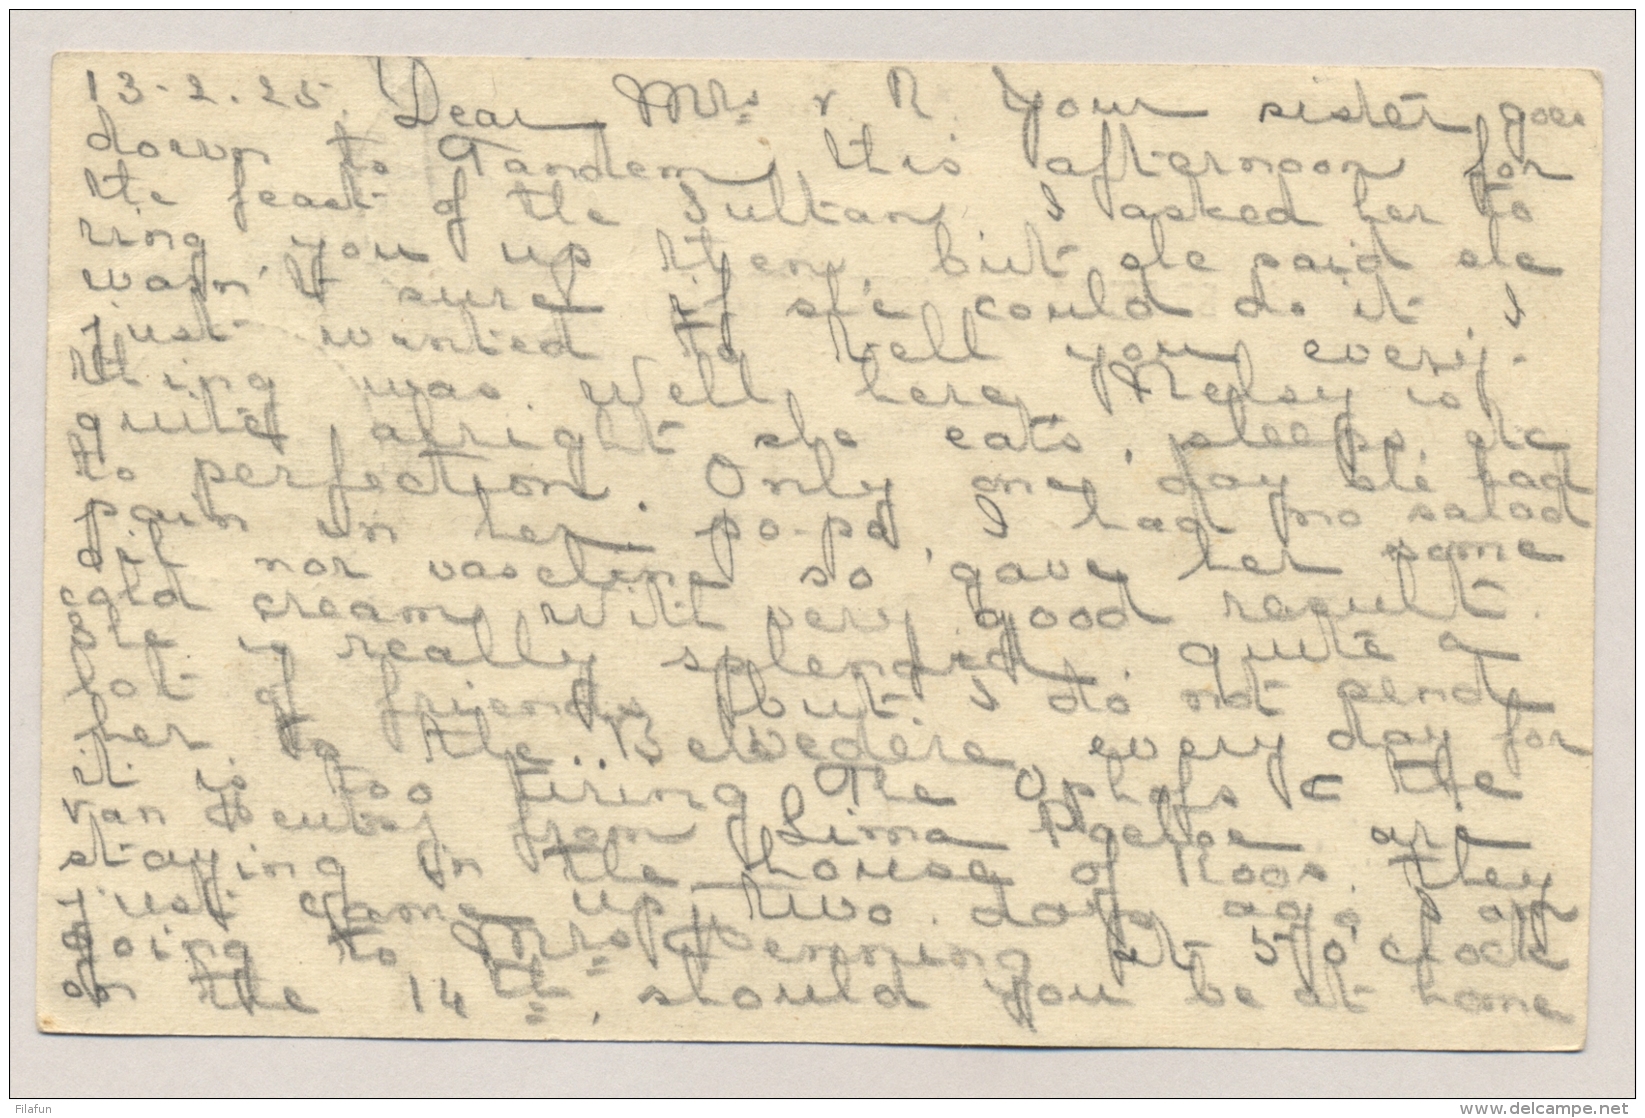 13-2.25. Dear Mrs v R. Your sister goes
down to Tandem this afternoon for
the feast of the Sultan. I asked her to
ring you up then, but she said she
wasn't sure if she could do it. I
just wanted to tell you every-
thing was well here, Melsy is
quite alright she eats, sleeps, etc
to perfection. Only one day she had
pain in her po-po, I had no salad
oil nor vaseline so gave her some
cold cream with very good result.
She is really splendid, quite a
lot of friends but I do not send
her to the Belvedère every day for
it is too tiring The c the
van from Lima are
staying in the house of Koos. they
just came up two days ago. I am
going to Mrs Henning at 5 o'clock
on the 14th, should you be at home
Filafun
www.delcampe.net